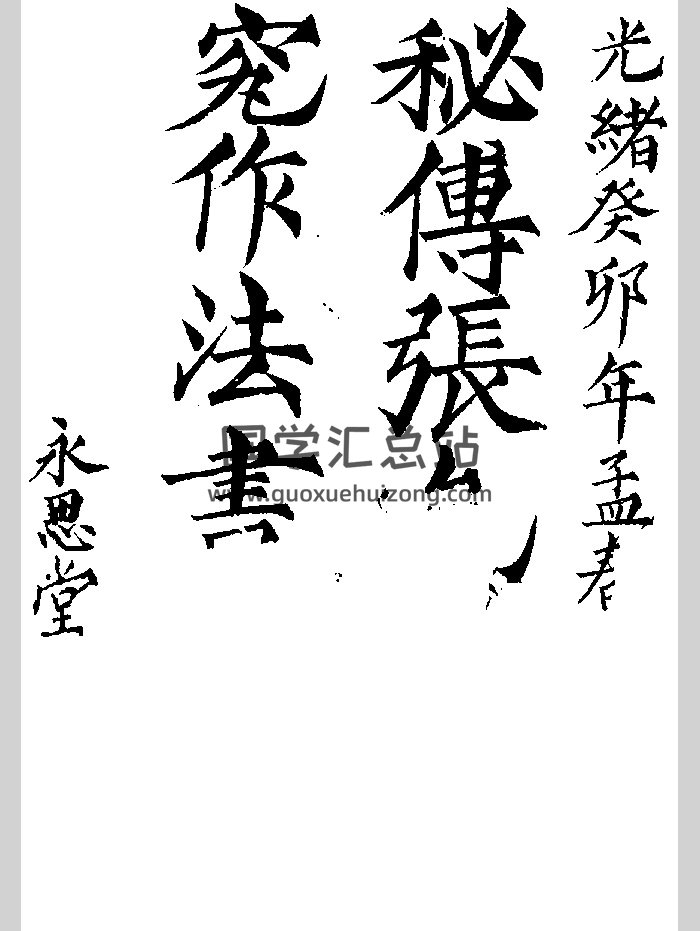 光緒癸卯年孟春
秘傳張
作法書
永思堂
国学汇总站
www.guoxuehuizong.com